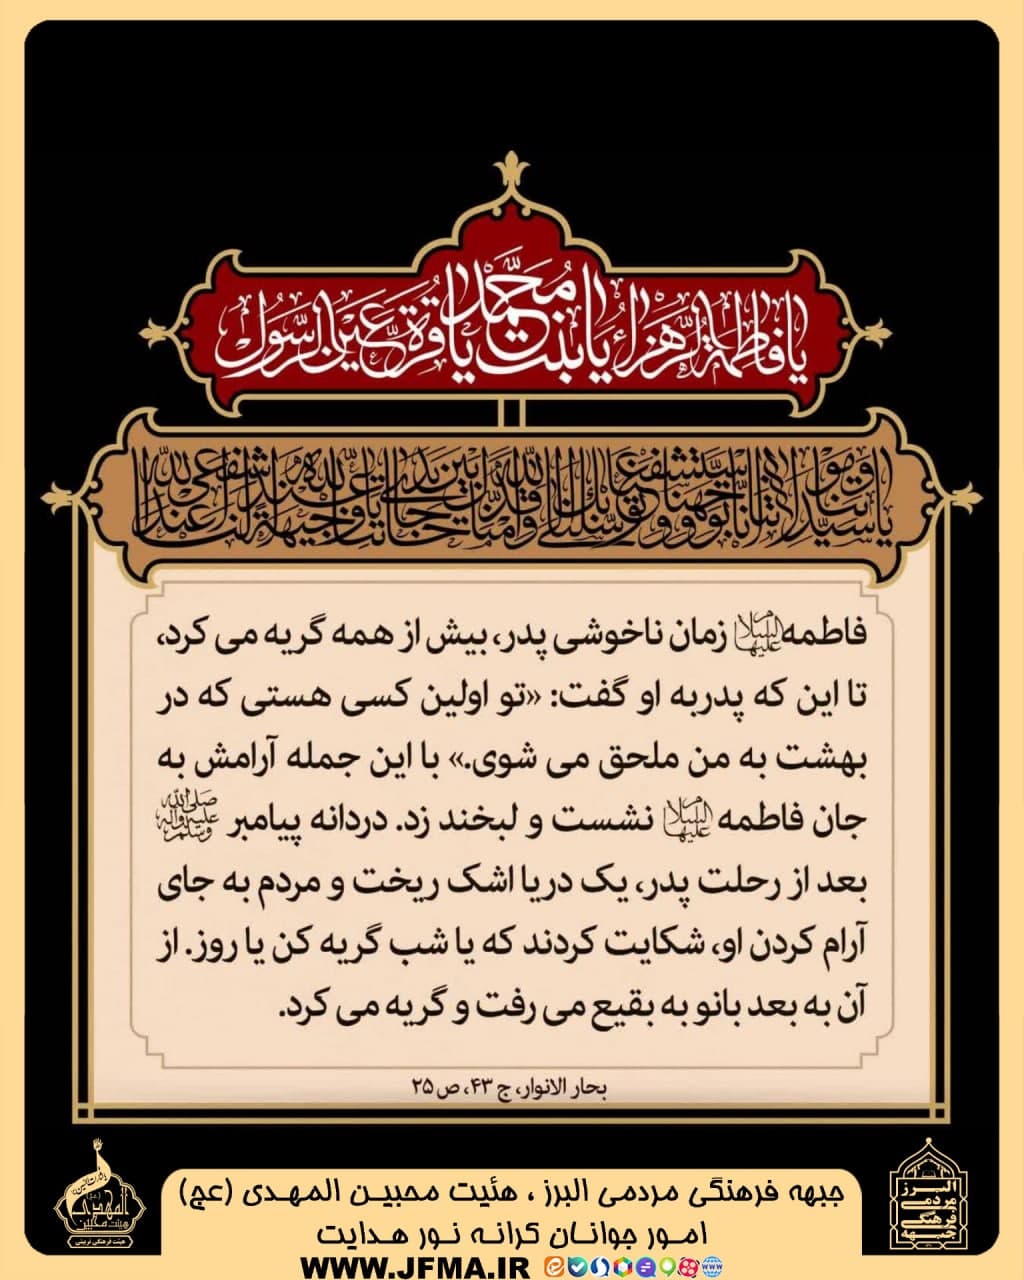 یا فاطمة الزهراء یا بنت محمد یا قرة عین الرسول
یا سیدتنا و مولاتنا انا توجهنا و استشفعنا و توسلنا بک الی الله و قدمناک بین یدی حاجاتنا یا وجیهة عند الله اشفعی لنا عند الله
فاطمه علیها السلام زمان ناخوشی پدر، بیش از همه گریه می کرد،
تا این که پدربه او گفت: «تو اولین کسی هستی که در
بهشت به من ملحق می شوی.» با این جمله آرامش به
جان فاطمه علیها السلام نشست و لبخند زد. دردانه پیامبر صلی الله علیه وآله وسلم
بعد از رحلت پدر، یک دریا اشک ریخت و مردم به جای
آرام کردن او، شکایت کردند که یا شب گریه کن یا روز. از
آن به بعد بانو به بقیع می رفت و گریه می کرد.
بحار الانوار، ج ۴۳، ص ۲۵
البرز
مردمی
فرهنگی
جبهه
المهدی
هیئت محبین
هیئت فرهنگی تربیتی
جبهه فرهنگی مردمی البرز ، هئیت محبین المهدی (عج)
امور جوانان کرانه نور هدایت
WWW.JFMA.IR